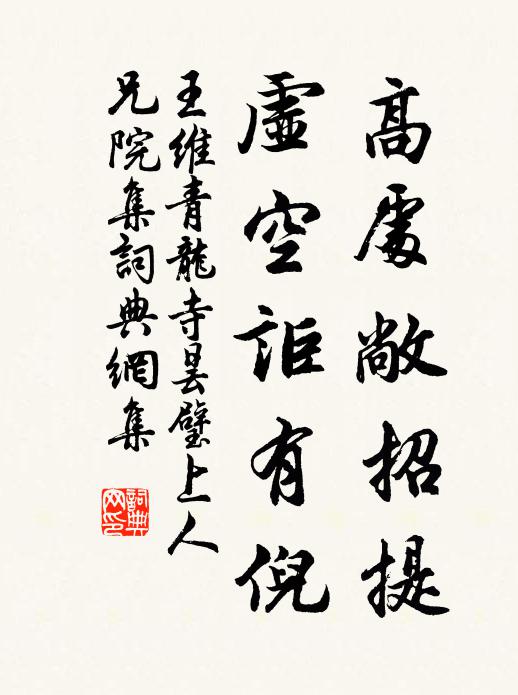 高處敞招提
虛空詎有倪
王維青龍寺曇璧上人
兄院集詞典網集
詞典網印